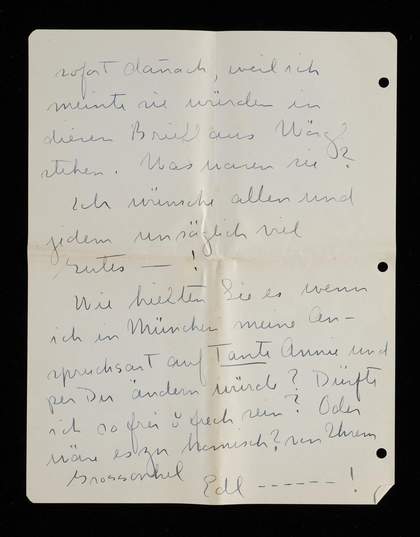 sofort danach, weil ich
meinte sie würden in
diesen Brief aus Wörgl
stehen. Was waren sie?
Ich wünsche allen und
jedem unsäglich viel
Gutes — !
Wie hielten Sie es wenn
ich in München meine An-
spruchsart auf Tante Annie und
per Du ändern würde? Dürfte
ich so frei ü frech sein? Oder
wäre es zu komisch? von Ihrem
Grossonkel
Edl ------ !